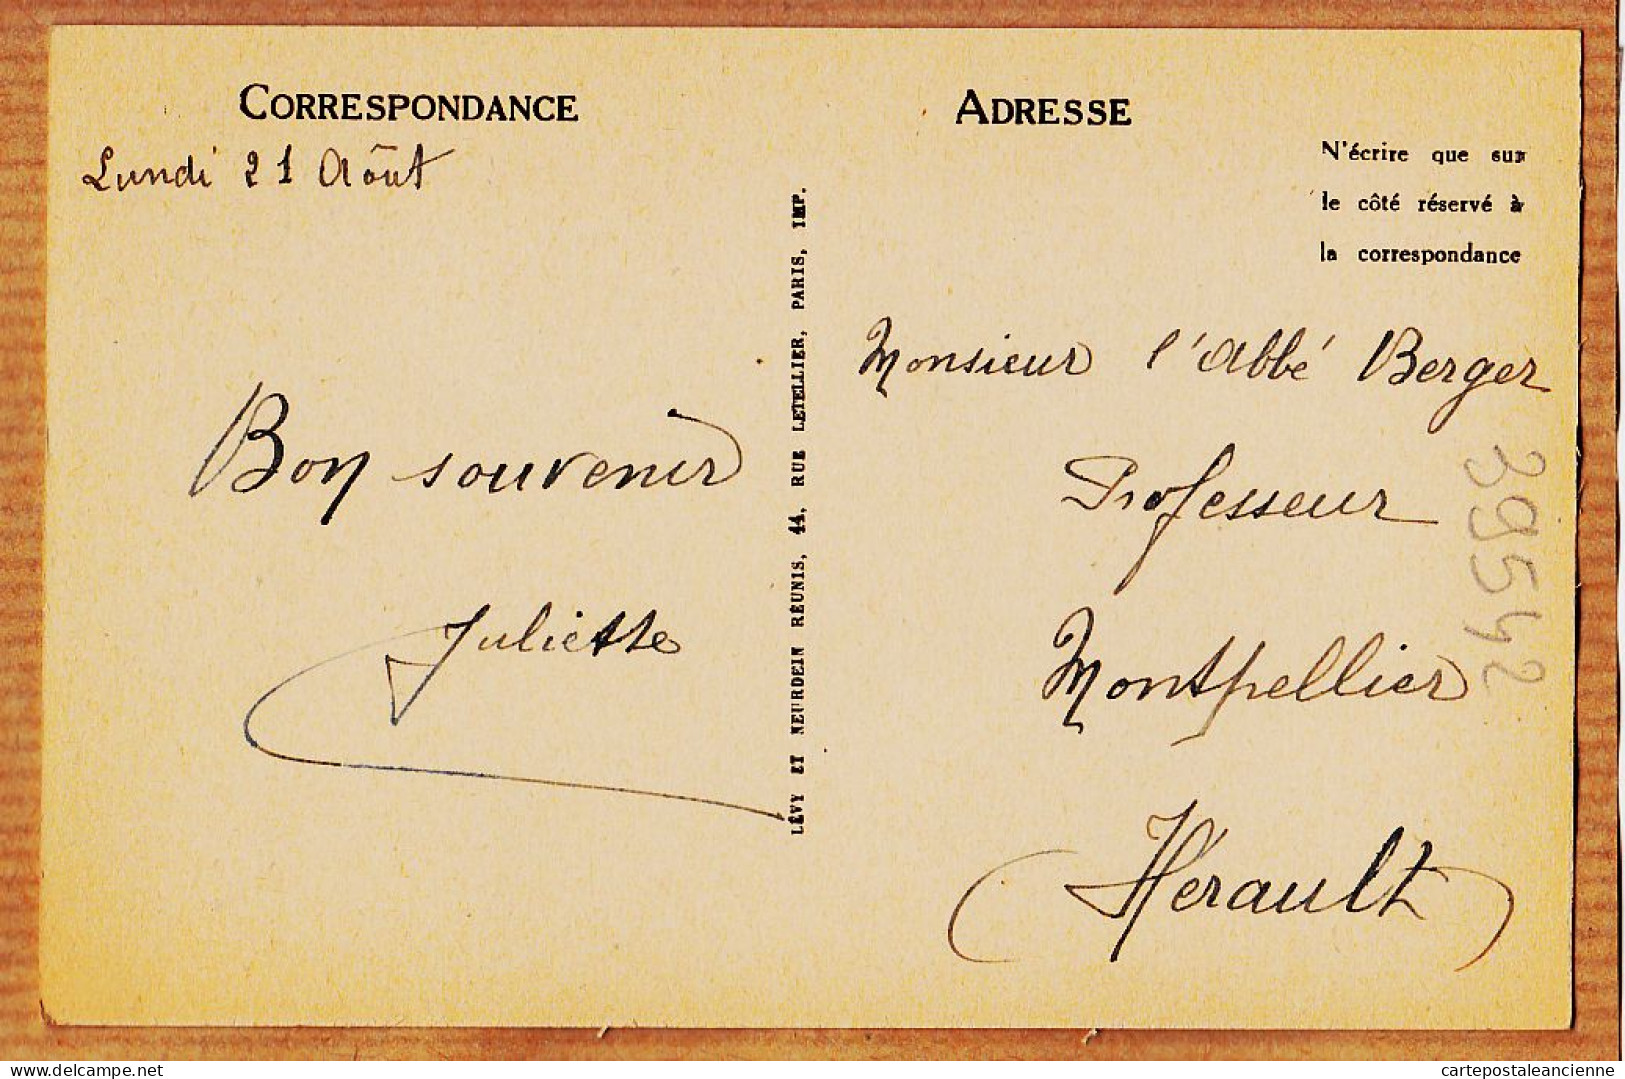 CORRESPONDANCE
Lundi 21 Août
Bon souvenir
Juliette
LÉVY ET NEURDEIN RÉUNIS, 44, RUE LETELLIER, PARIS, IMP.
ADRESSE
N'écrire que sur
le côté réservé à
la correspondance
Monsieur l'Abbé Berger
Professeur
Montpellier
Hérault
39542
delcampe.net
cartepostaleancienne